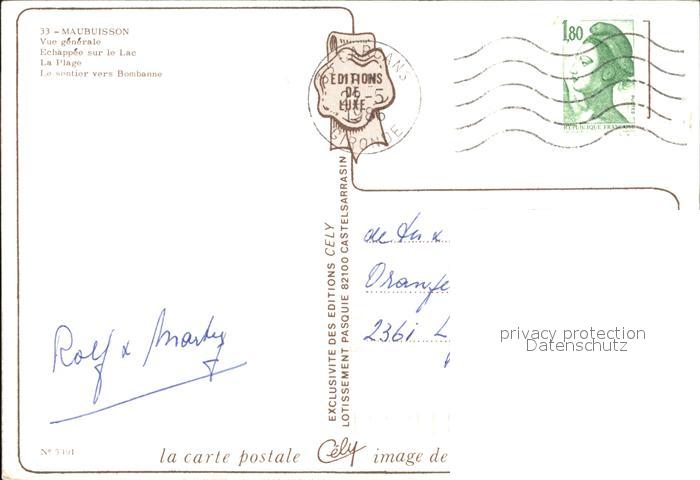 33 - MAUBUISSON
Vue générale
Echappée sur le Lac
La Plage
Le sentier vers Bombanne
EDITIONS
DE
LUXE
CARCANS
-5
1986
GIRONDE
1,80
POSTES
REPUBLIQUE FRANCAISE
EXCLUSIVITE DES EDITIONS CELY
LOTISSEMENT PASQUIE 82100 CASTELSARRASIN
de
Oranje
2361 L
privacy protection
Datenschutz
Rolf & Marty
N° 5491
la carte postale Cély image de